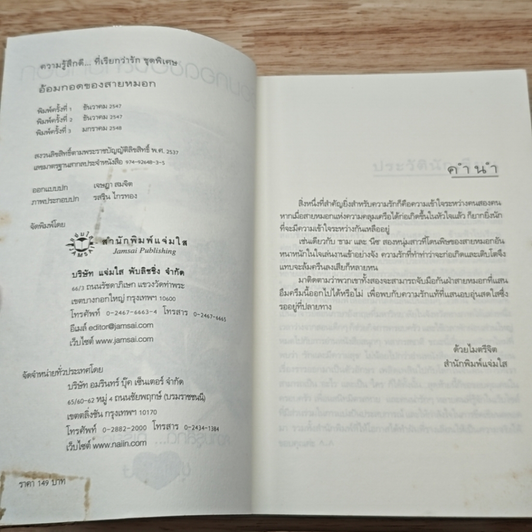 ความรู้สึกดี... ที่เรียกว่ารัก ชุดพิเศษ
อ้อมกอดของสายหมอก
พิมพ์ครั้งที่ 1 ธันวาคม 2547
พิมพ์ครั้งที่ 2 ธันวาคม 2547
พิมพ์ครั้งที่ 3 มกราคม 2548
สงวนลิขสิทธิ์ตามพระราชบัญญัติลิขสิทธิ์ พ.ศ. 2537
เลขมาตรฐานสากลประจำหนังสือ 974-92648-3-5
ออกแบบปก เจษฎา สมจิต
ภาพประกอบปก รสริน ไกรทอง
จัดพิมพ์โดย
สำนักพิมพ์แจ่มใส
Jamsai Publishing
บริษัท แจ่มใส พับลิชชิ่ง จำกัด
66/3 ถนนรัชดาภิเษก แขวงวัดท่าพระ
เขตบางกอกใหญ่ กรุงเทพฯ 10600
โทรศัพท์ 0-2467-6663-4 โทรสาร 0-2467-6665
อีเมล์ editor@jamsai.com
เว็บไซต์ www.jamsai.com
จัดจำหน่ายทั่วประเทศโดย
บริษัท อมรินทร์ บุ๊ค เซ็นเตอร์ จำกัด
65/60-62 หมู่ 4 ถนนชัยพฤกษ์ (บรมราชชนนี)
เขตตลิ่งชัน กรุงเทพฯ 10170
โทรศัพท์ 0-2882-2000 โทรสาร 0-2434-1384
เว็บไซต์ www.naiin.com
ราคา 149 บาท
คำนำ
สิ่งหนึ่งที่สำคัญยิ่งสำหรับความรักก็คือความเข้าใจระหว่างคนสองคน
หากเมื่อสายหมอกแห่งความคลุมเครือได้ก่อเกิดขึ้นในหัวใจแล้ว ก็ยากยิ่งนัก
ที่จะมีความเข้าใจระหว่างกันเหลืออยู่
เช่นเดียวกับ ชาม และ นีช สองหนุ่มสาวที่โดนพิษของสายหมอกอัน
หนาหนักในใจเล่นงานเข้าอย่างจัง ความรักที่ทำท่าว่าจะก่อเกิดและเติบโตจึง
แทบจะล้มครืนลงเสียก็หลายหน
มาติดตามว่าพวกเขาทั้งสองจะสามารถจับมือกันฝ่าสายหมอกที่แสน
อึมครึมนี้ออกไปได้หรือไม่ เพื่อพบกับความรักแท้ที่แสนอบอุ่นสดใสซึ่ง
รออยู่ที่ปลายทาง
ด้วยไมตรีจิต
สำนักพิมพ์แจ่มใส